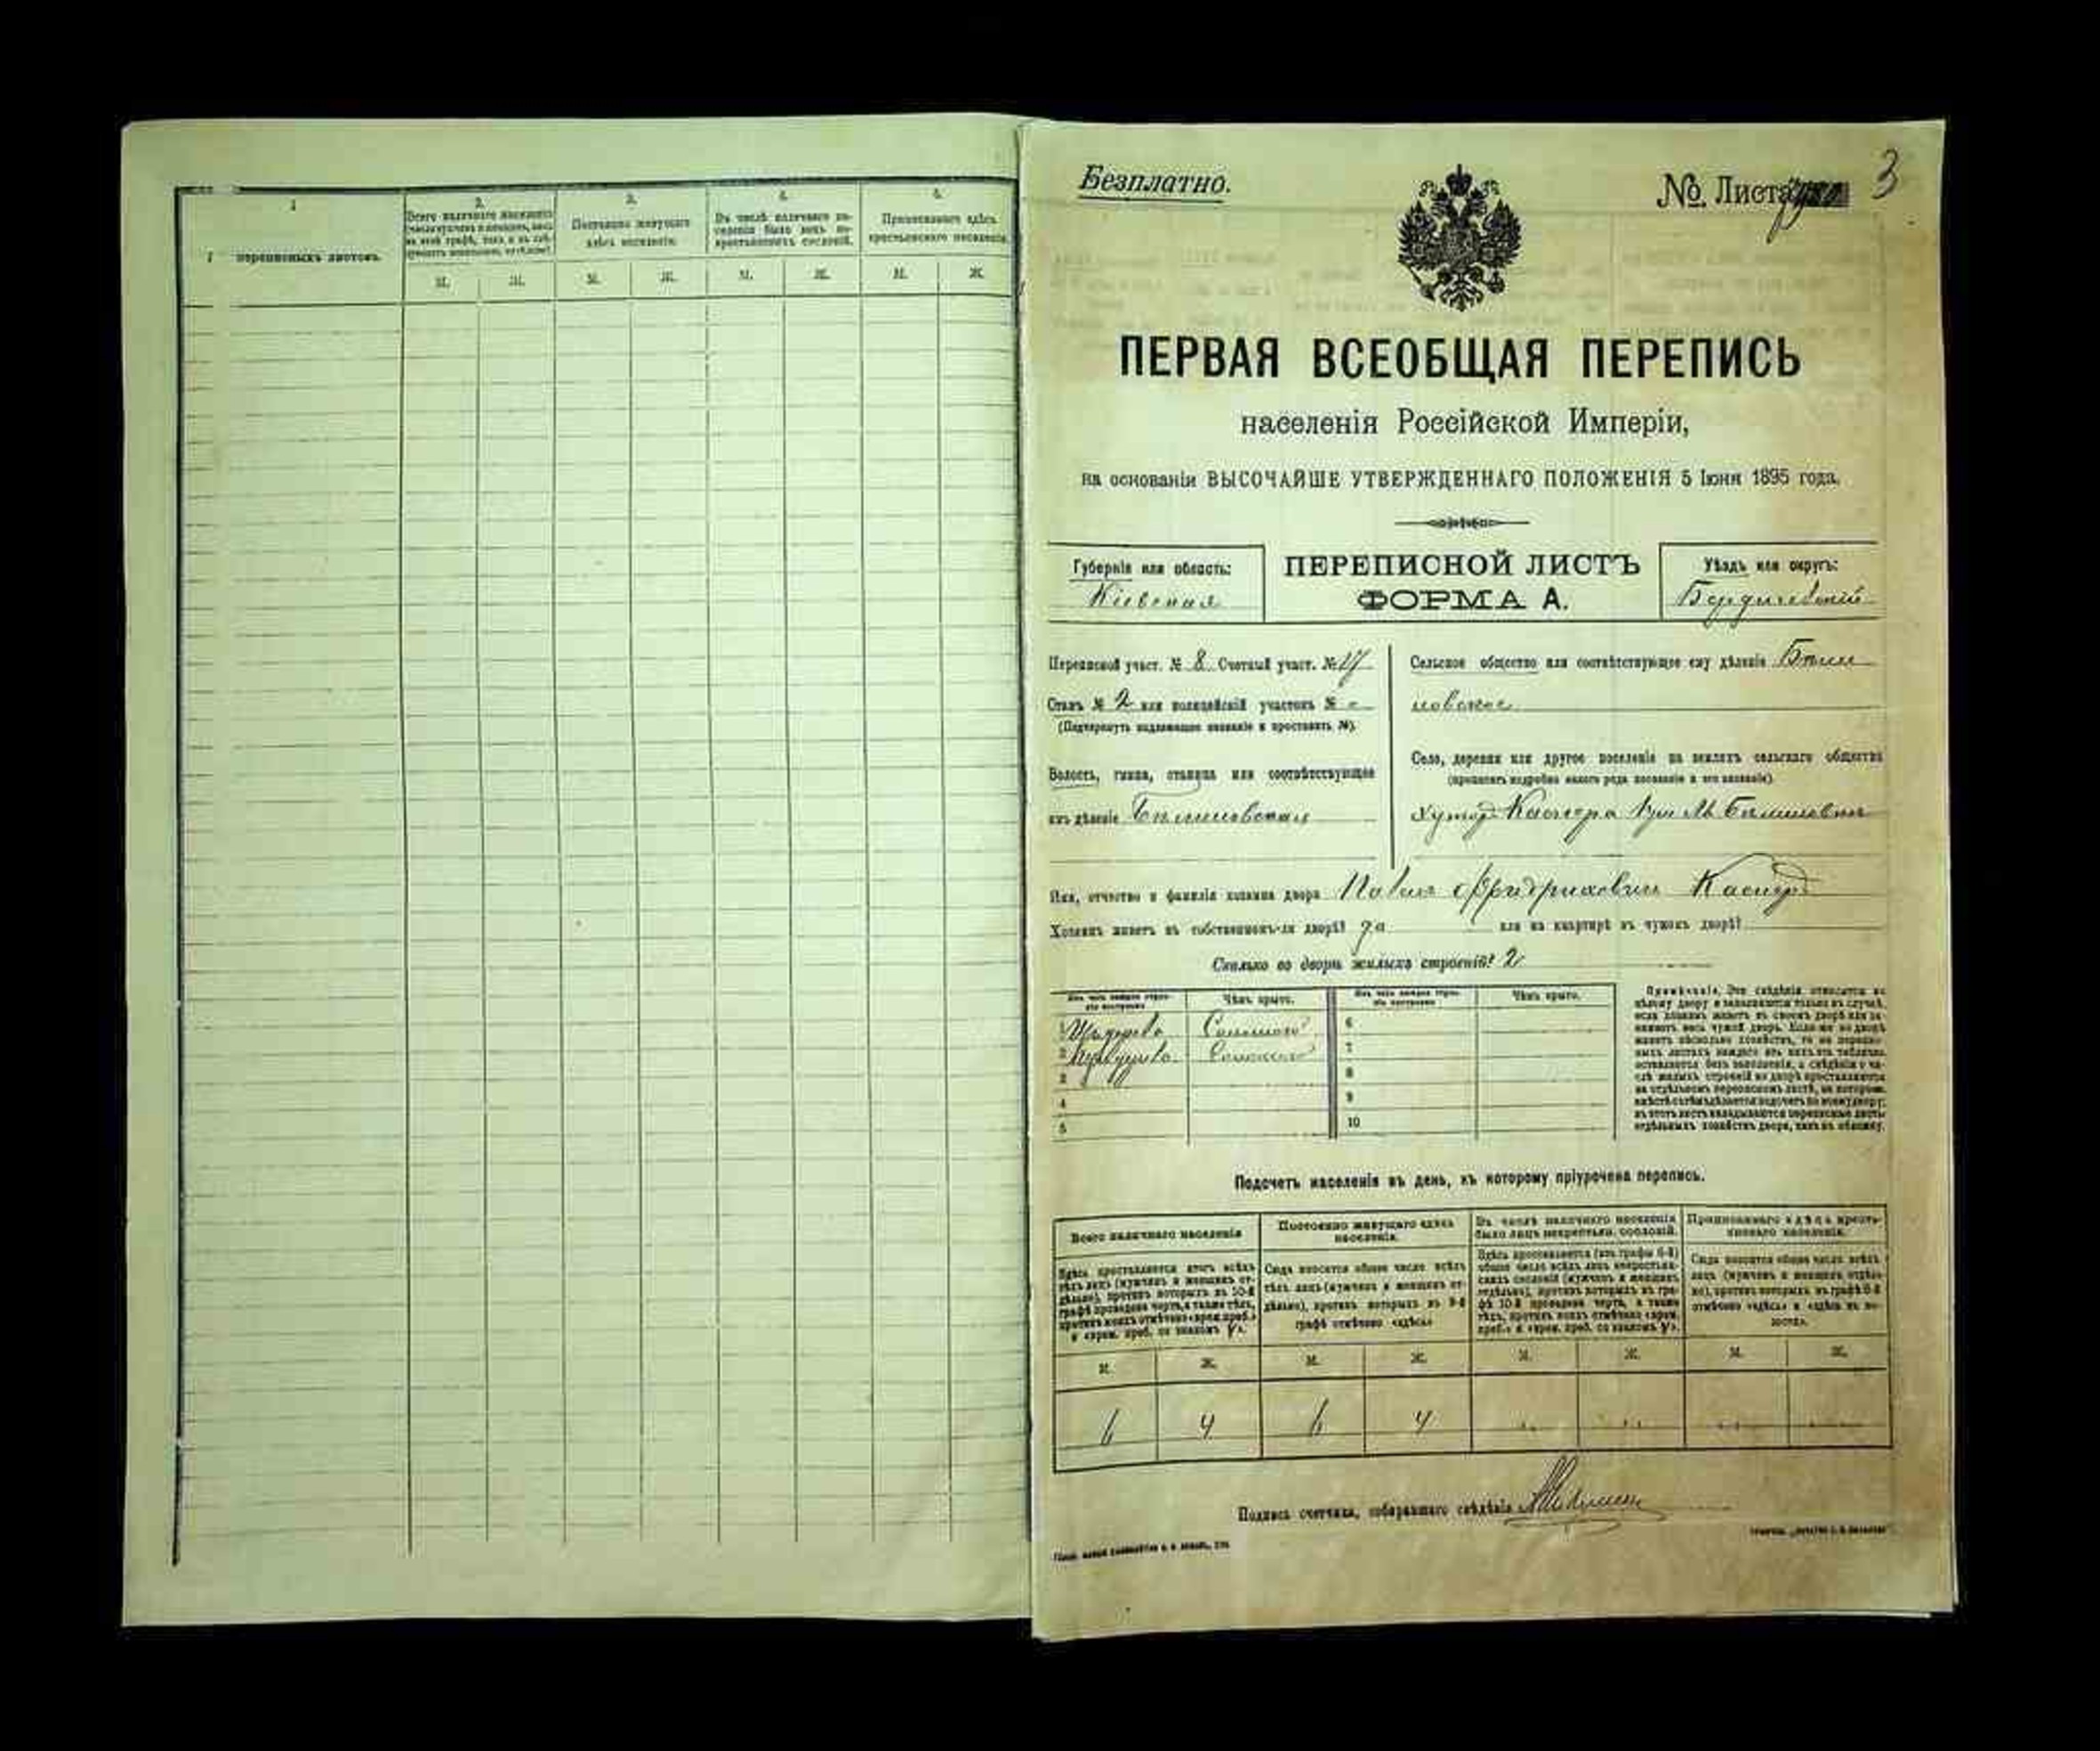 1
переписныхъ листовъ.
2.
3.
Постоянно живущаго
здѣсь населенія.
4.
Въ числѣ наличнаго на-
селенія было лицъ не-
крестьянскихъ сословій.
5.
Приписаннаго здѣсь
крестьянскаго населенія.
М. Ж. М. Ж. М. Ж. М. Ж.
Безплатно.
№ Листа
3
ПЕРВАЯ ВСЕОБЩАЯ ПЕРЕПИСЬ
населенія Россійской Имперіи,
на основаніи ВЫСОЧАЙШЕ УТВЕРЖДЕННАГО ПОЛОЖЕНІЯ 5 Іюня 1895 года.
Губернія или область:
Кіевская
ПЕРЕПИСНОЙ ЛИСТЪ
ФОРМА А.
Уѣздъ или округъ:
Бердичевскій
Переписной участ. № 8 Счетный участ. № 17
Станъ № 2 или полицейскій участокъ №
(Подчеркнуть надлежащее названіе и проставить №).
Волость, гмина, станица или соотвѣтствующее
имъ дѣленіе Бѣлиловская
Сельское общество или соотвѣтствующее ему дѣленіе Бѣли
ловское
Село, деревня или другое поселеніе на земляхъ сельскаго общества
(прописать подробно какого рода поселеніе и его названіе).
Хутор Каспера при М. Бѣлиловкѣ
Имя, отчество и фамилія хозяина двора Павел Фридрихович Каспер
Хозяинъ живетъ въ собственномъ-ли дворѣ? да или на квартирѣ въ чужомъ дворѣ?
Сколько во дворѣ жилыхъ строеній? 2
Изъ чего каждое строе-
ніе построено
Чѣмъ крыто.
Изъ чего каждое строе-
ніе построено
Чѣмъ крыто.
1 Соломою 6
2 Соломою 7
3 8
4 9
5 10
Примѣчаніе. Эти свѣдѣнія относятся ко
цѣлому двору и заполняются только въ случаѣ,
если хозяинъ живетъ въ своемъ дворѣ или за-
нимаетъ весь чужой дворъ. Если-же во дворѣ
живетъ нѣсколько хозяйствъ, то на перепис-
ныхъ листахъ каждаго изъ нихъ эта табличка
оставляется безъ заполненія, а свѣдѣнія о чи-
слѣ жилыхъ строеній во дворѣ проставляются
на отдѣльномъ переписномъ листѣ, на которомъ
вмѣстѣ съ тѣмъ дѣлается подсчетъ по всему двору;
въ этотъ листъ вкладываются переписные листы
отдѣльныхъ хозяйствъ двора, какъ въ обложку.
Подсчетъ населенія въ день, къ которому пріурочена перепись.
Всего наличнаго населенія
Постоянно живущаго здѣсь
населенія.
Въ числѣ наличнаго населенія
было лицъ некрестьян. сословій.
Приписаннаго здѣсь кресть-
янскаго населенія.
Здѣсь проставляется итогъ всѣхъ
тѣхъ лицъ (мужчинъ и женщинъ от-
дѣльно), противъ которыхъ въ 10-й
графѣ проведена черта, а также тѣхъ,
противъ коихъ отмѣчено «врем. преб.»
и «врем. преб. со знакомъ V».
Сюда вносится общее число всѣхъ
тѣхъ лицъ (мужчинъ и женщинъ от-
дѣльно), противъ которыхъ въ 9-й
графѣ отмѣчено «здѣсь»
Здѣсь проставляется (изъ графы 6-й)
общее число всѣхъ лицъ некрестьян-
скихъ сословій (мужчинъ и женщинъ
отдѣльно), противъ которыхъ въ гра-
фѣ 10-й проведена черта, а также
тѣхъ, противъ коихъ отмѣчено «врем.
преб.» и «врем. преб. со знакомъ V».
Сюда вносится общее число всѣхъ
лицъ (мужчинъ и женщинъ отдѣль-
но), противъ которыхъ въ графѣ 8-й
отмѣчено «здѣсь» и «здѣсь въ во-
лости».
М. Ж. М. Ж. М. Ж. М. Ж.
6 4 6 4
Подпись счетчика, собиравшаго свѣдѣнія